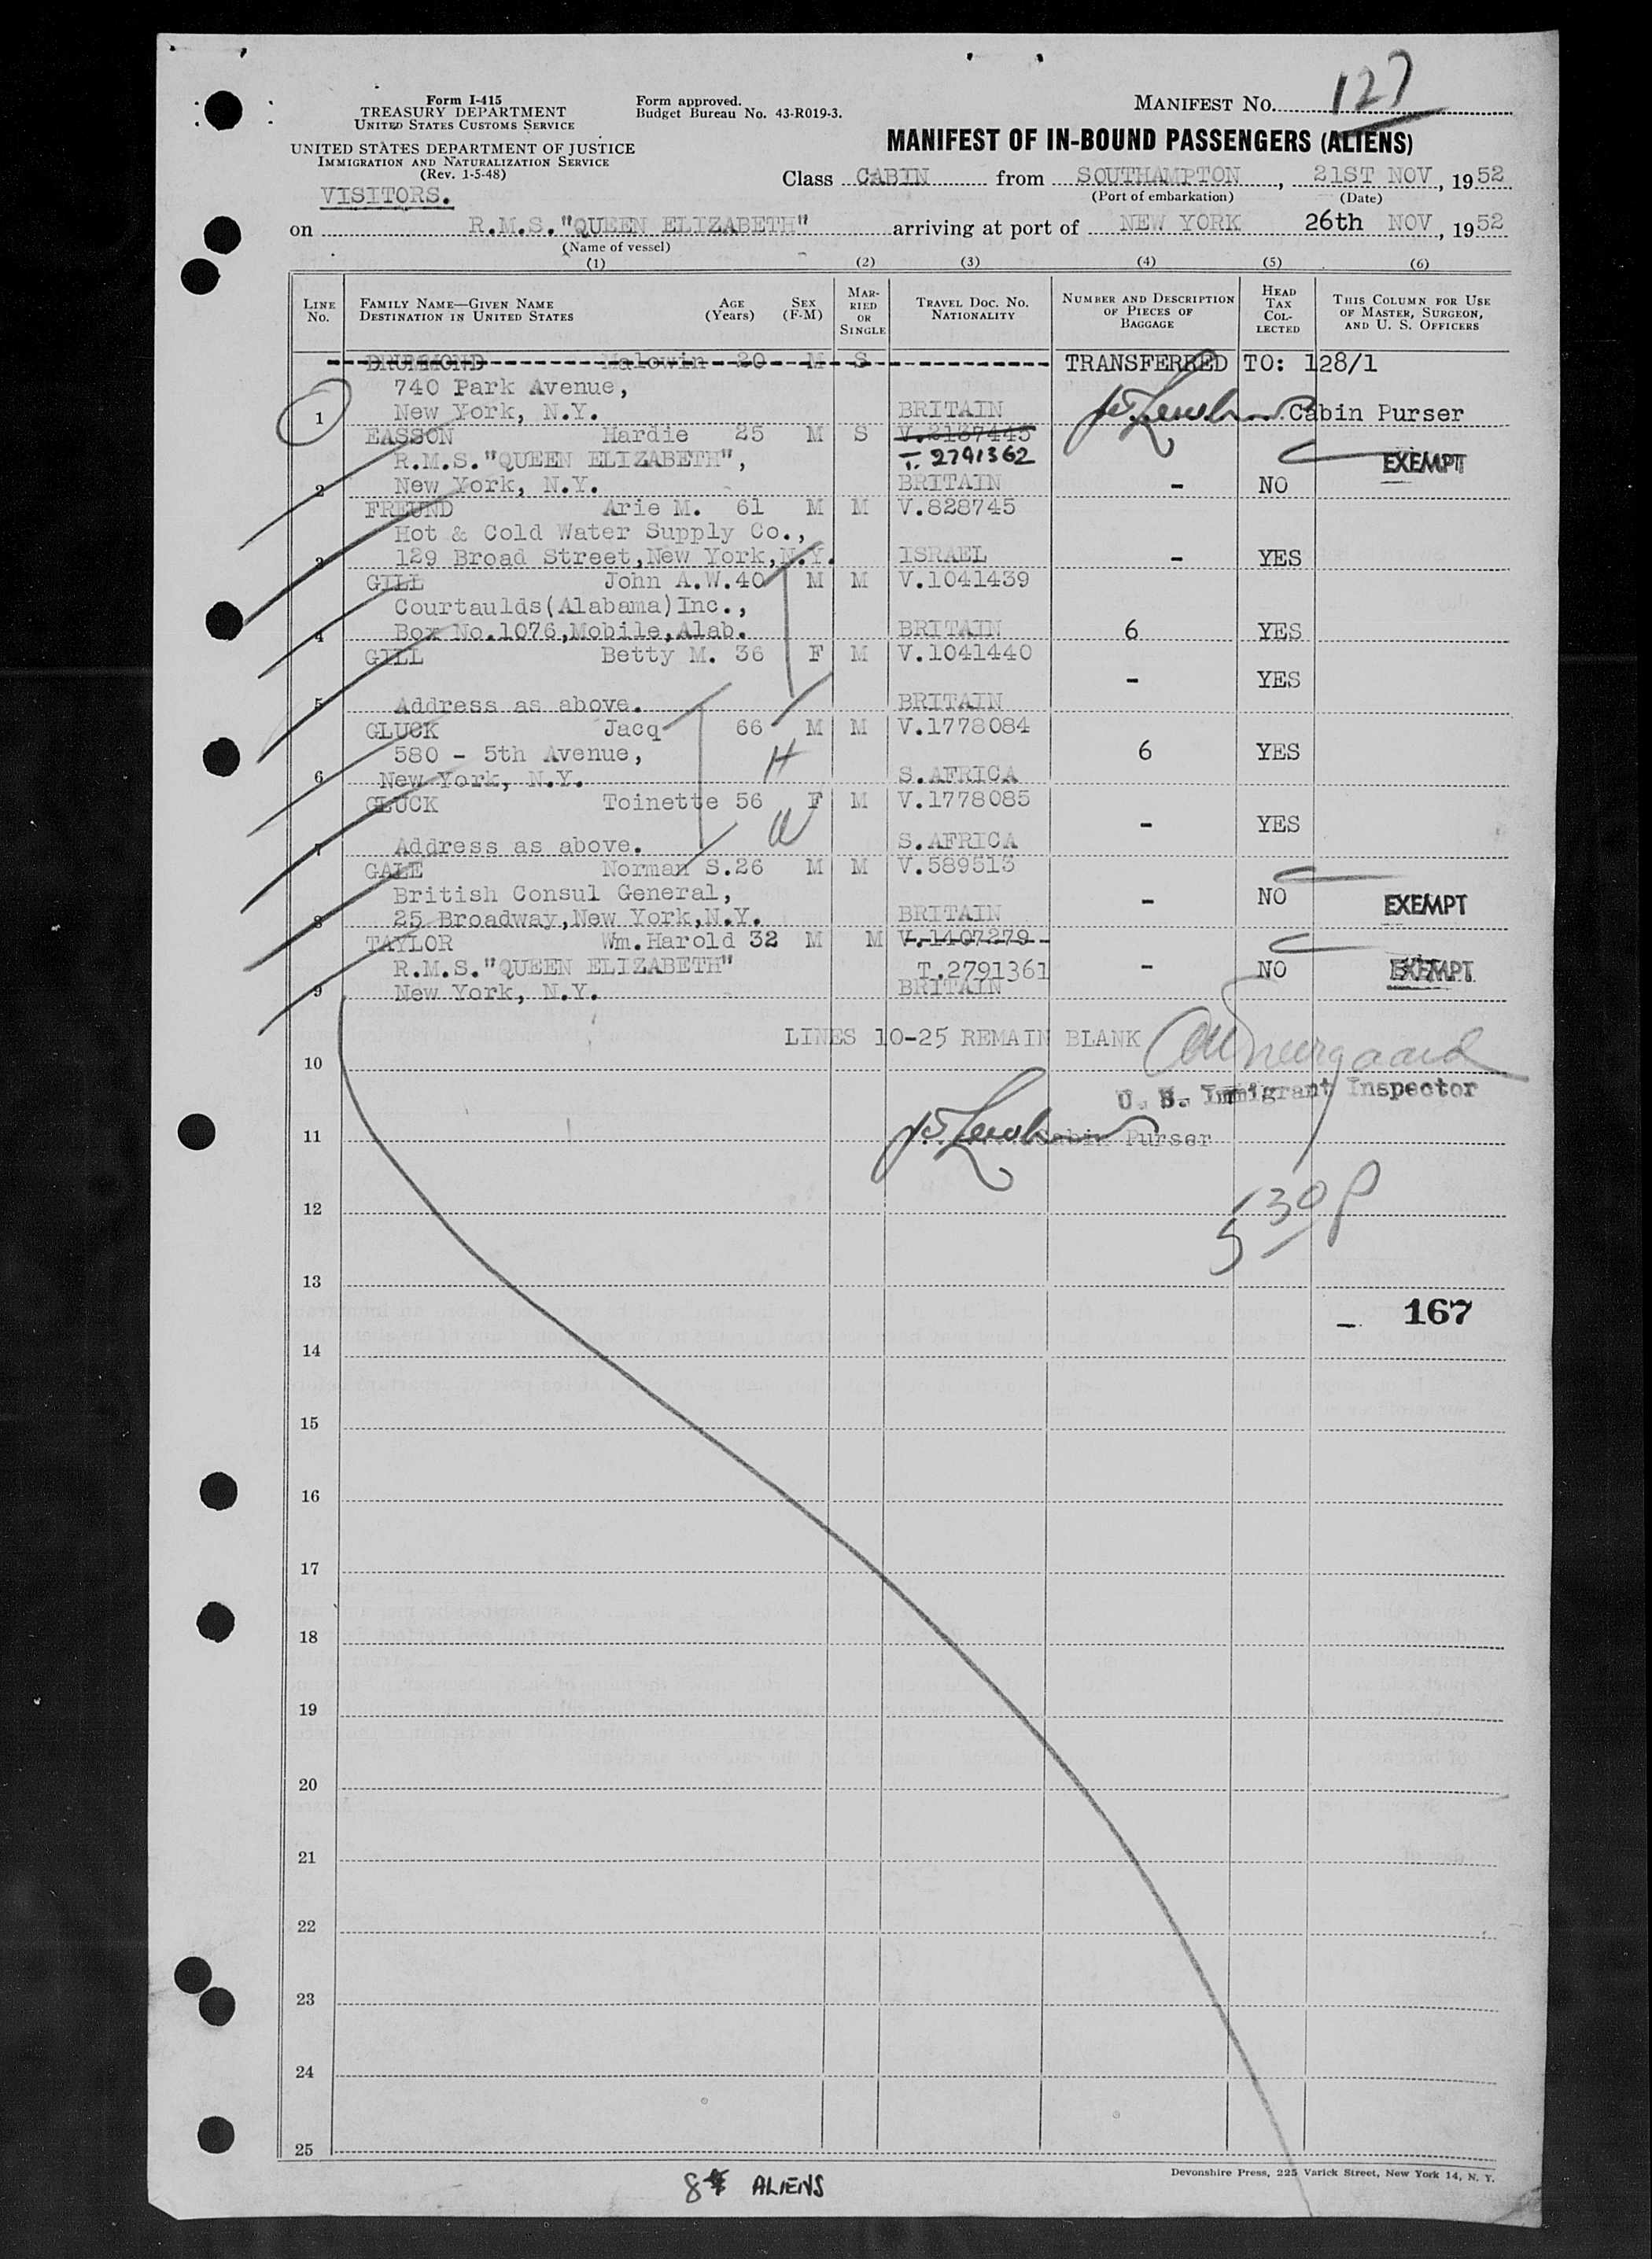 127
Form I-415
TREASURY DEPARTMENT
UNITED STATES CUSTOMS SERVICE
Form approved.
Budget Bureau No. 43-R019-3.
MANIFEST NO.
UNITED STATES DEPARTMENT OF JUSTICE
IMMIGRATION AND NATURALIZATION SERVICE
(Rev. 1-5-48)
MANIFEST OF IN-BOUND PASSENGERS (ALIENS)
Class CABIN from SOUTHAMPTON, 21ST NOV, 1952
(Port of embarkation) (Date)
VISITORS.
on R.M.S."QUEEN ELIZABETH" arriving at port of NEW YORK 26th NOV, 1952
(Name of vessel)
(1) (2) (3) (4) (5) (6)
LINE NO. FAMILY NAME—GIVEN NAME DESTINATION IN UNITED STATES AGE (Years) SEX (F-M) MARRIED OR SINGLE TRAVEL DOC. NO. NATIONALITY NUMBER AND DESCRIPTION OF PIECES OF BAGGAGE HEAD TAX COLLECTED THIS COLUMN FOR USE OF MASTER, SURGEON, AND U. S. OFFICERS
DRUMMOND Malowin 20 M S TRANSFERRED TO: 128/1
740 Park Avenue,
1 New York, N.Y. BRITAIN Cabin Purser
EASSON Hardie 25 M S V.2137445
R.M.S."QUEEN ELIZABETH", T. 2791362 EXEMPT
2 New York, N.Y. BRITAIN - NO
FREUND Arie M. 61 M M V.828745
Hot & Cold Water Supply Co.,
3 129 Broad Street,New York,N.Y. ISRAEL - YES
GILL John A.W. 40 M M V.1041439
Courtaulds(Alabama)Inc.,
4 Box No.1076,Mobile,Alab. BRITAIN 6 YES
GILL Betty M. 36 F M V.1041440
- YES
5 Address as above. BRITAIN
GLUCK Jacq 66 M M V.1778084
580 - 5th Avenue, H 6 YES
6 New York, N.Y. S.AFRICA
GLUCK Toinette 56 F M V.1778085
W - YES
7 Address as above. S.AFRICA
GALE Norman S. 26 M M V.589513
British Consul General, - NO EXEMPT
8 25 Broadway,New York,N.Y. BRITAIN
TAYLOR Wm.Harold 32 M M V.1407279
R.M.S."QUEEN ELIZABETH" T.2791361 - NO EXEMPT
9 New York, N.Y. BRITAIN
LINES 10-25 REMAIN BLANK
10
U. S. Immigrant Inspector
11 Cabin Purser
12
5 30 P
13
- 167
14
15
16
17
18
19
20
21
22
23
24
25
Devonshire Press, 225 Varick Street, New York 14, N. Y.
8 ALIENS